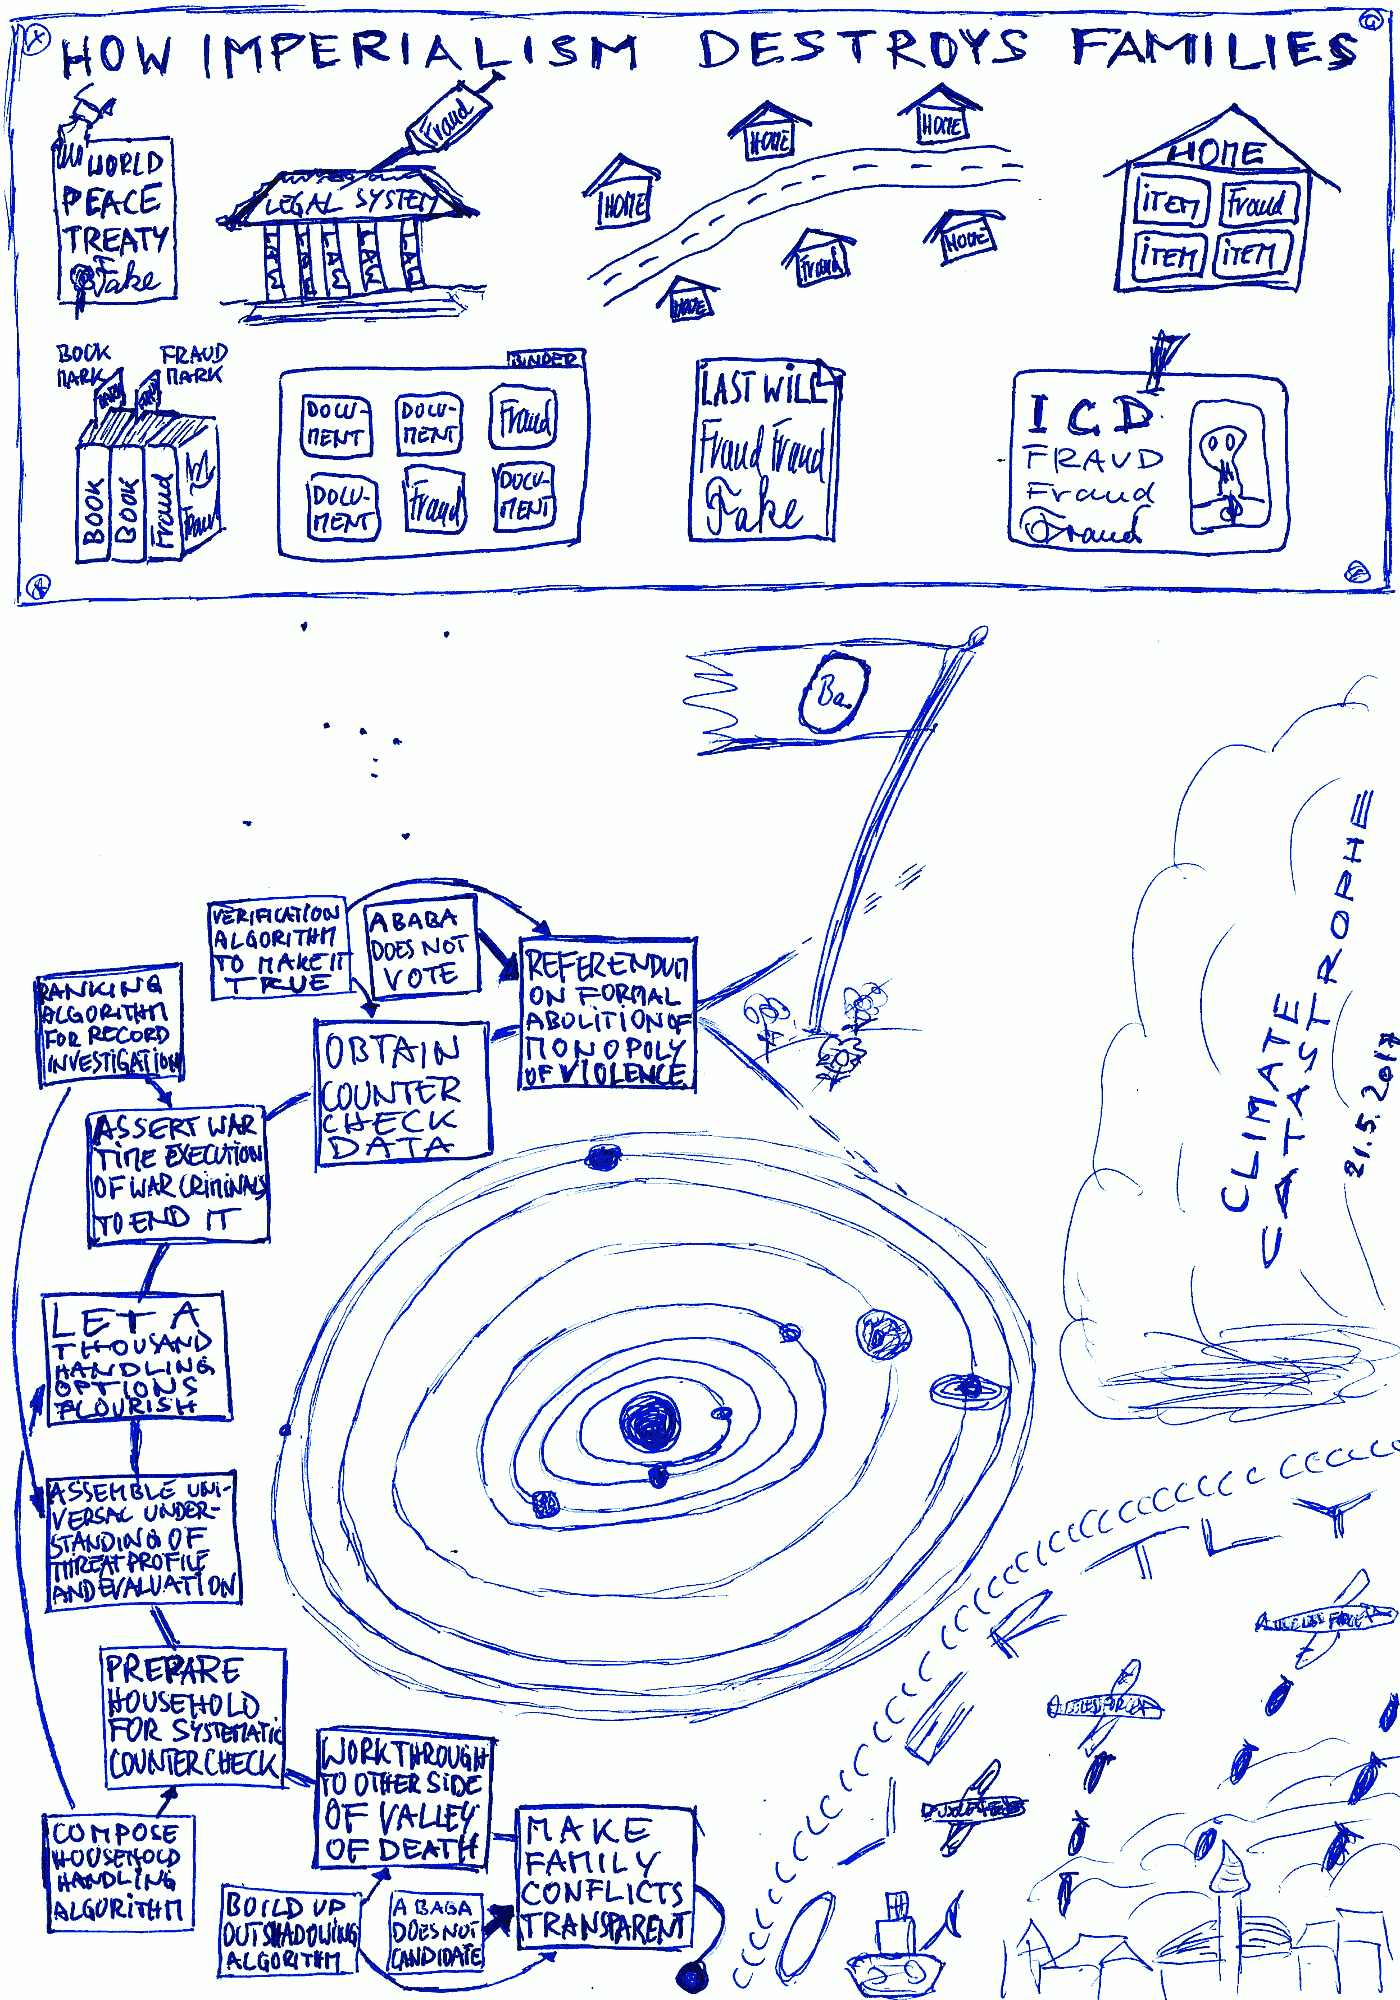 HOW IMPERIALISM DESTROYS FAMILIES
WORLD
PEACE
TREATY
Fake
Fraud
LEGAL SYSTEM
LAW
LAW
LAW
LAW
LAW
HOME
HOME
HOME
HOME
Fraud
HOME
HOME
ITEM
Fraud
ITEM
ITEM
BOOK
MARK
FRAUD
MARK
BOOK
BOOK
Fraud
Fraud
BINDER
DOCU-
MENT
DOCU-
MENT
Fraud
DOCU-
MENT
Fraud
DOCU-
MENT
LAST WILL
Fraud Fraud
Fake
ICD
FRAUD
Fraud
Fraud
Ba.
CLIMATE
CATASTROPHE
21.5.2017
VERIFICATION
ALGORITHM
TO MAKE IT
TRUE
ABABA
DOES NOT
VOTE
REFERENDUM
ON FORMAL
ABOLITION OF
MONOPOLY
OF VIOLENCE
RANKING
ALGORITHM
FOR RECORD
INVESTIGATION
OBTAIN
COUNTER
CHECK
DATA
ASSERT WAR
TIME EXECUTION
OF WAR CRIMINALS
TO END IT
LET A
THOUSAND
HANDLING
OPTIONS
FLOURISH
ASSEMBLE UNI-
VERSAL UNDER-
STANDING OF
THREAT PROFILE
AND EVALUATION
PREPARE
HOUSEHOLD
FOR SYSTEMATIC
COUNTER CHECK
COMPOSE
HOUSEHOLD
HANDLING
ALGORITHM
WORK THROUGH
TO OTHER SIDE
OF VALLEY
OF DEATH
MAKE
FAMILY
CONFLICTS
TRANSPARENT
BUILD UP
OUTSHADOWING
ALGORITHM
A BAGA
DOES NOT
CANDIDATE